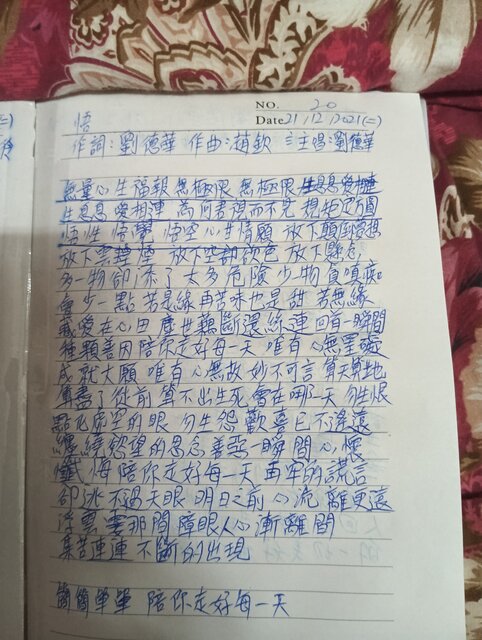 NO. 20
悟 Date 21/12/2021(二)
作詞:劉德華 作曲:趙欽 主唱劉德華
無量心生福報無極限 無極限生息息愛相連
生息息 愛相連 為何君視而不見 規矩定方圓
悟性 悟覺 悟空 心甘情願 放下顛倒夢想
放下雲煙 放下空却欲色 放下懸念
多一物卻添了太多危險 少物貪嗔痴
會少一點 若是緣 再苦味也是甜 若無緣
藏愛在心田 塵世藕斷還絲連 回首一瞬間
種顆善因陪你走好每一天 唯有心無罣礙
成就大願 唯有心無故妙不可言 算天算地
算盡了從前 算不出生死會在哪一天 勿生恨
點化虛空的眼 勿生怨 歡喜已不遙遠
纏繞慾望的思念 善惡一瞬間 心懷
懺悔 陪你走好每一天 再牢的謊言
卻逃不過天眼 明日之前 心流離更遠
浮雲霎那間障眼 人心漸離間
集苦連連 不斷的出現
簡簡單單 陪你走好每一天